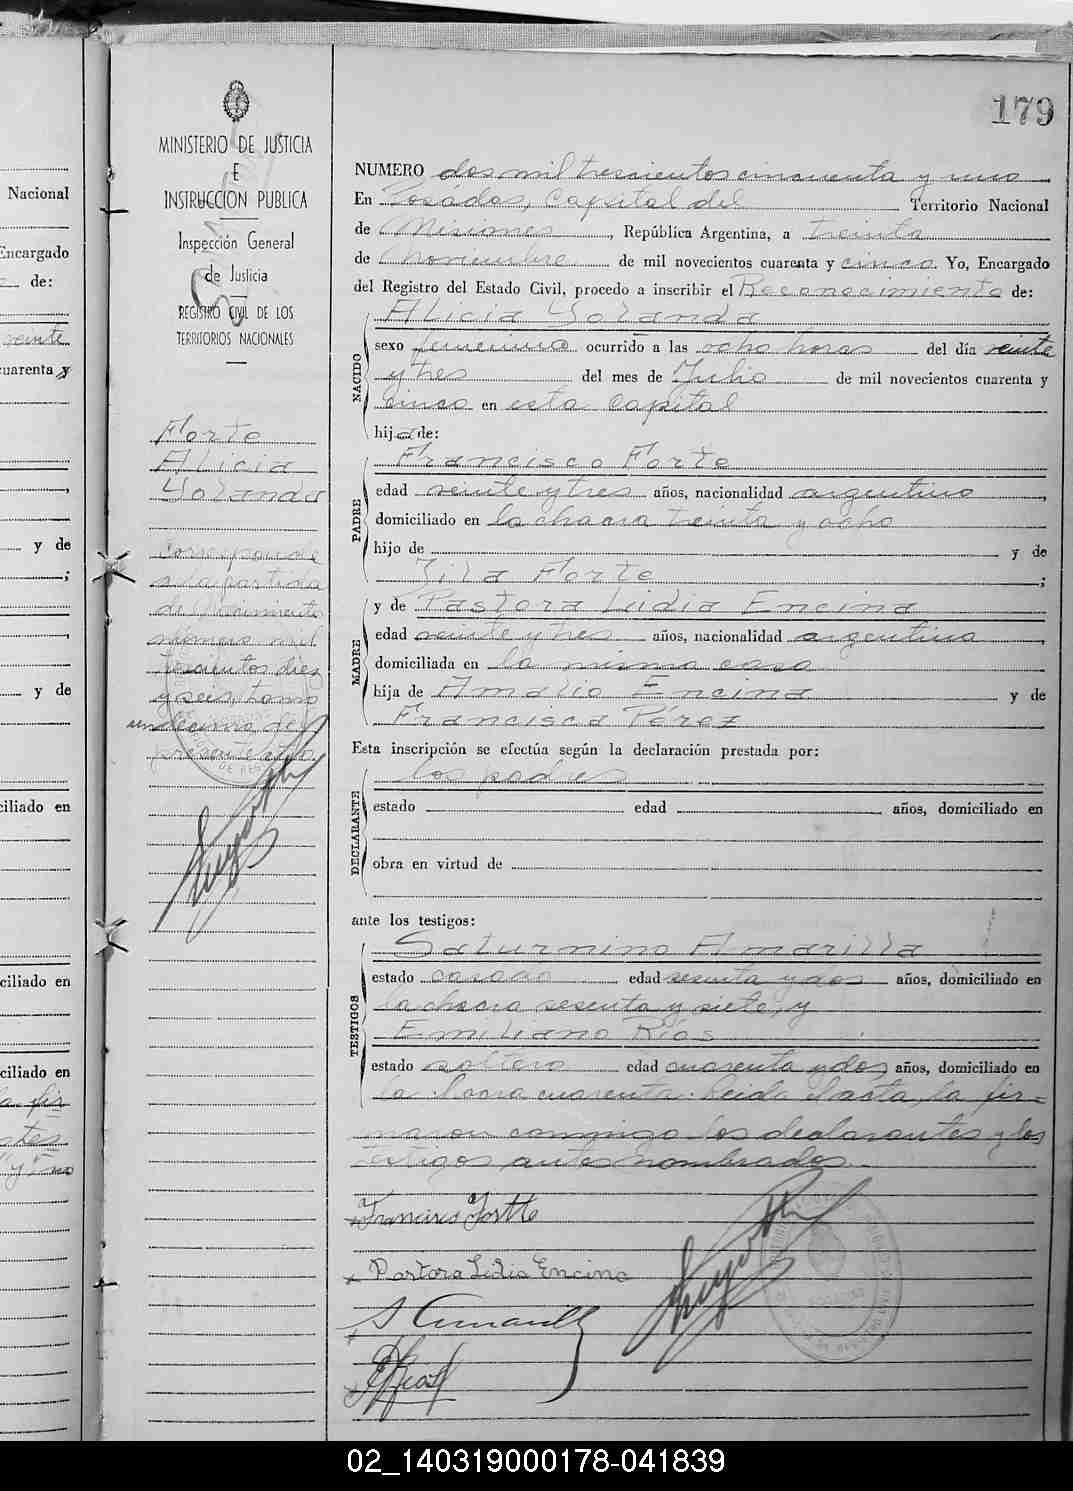 179
MINISTERIO DE JUSTICIA
E
INSTRUCCIÓN PUBLICA
Inspección General
de Justicia
REGISTRO CIVIL DE LOS
TERRITORIOS NACIONALES
Forte
Alicia
Yolanda
Corresponde
a la partida
de Nacimiento
número mil
trescientos diez
y seis, tomo
undécimo del
presente año.
NUMERO dos mil trescientos cincuenta y uno
En Posadas, Capital del Territorio Nacional
de Misiones, República Argentina, a treinta
de noviembre de mil novecientos cuarenta y cinco. Yo, Encargado
del Registro del Estado Civil, procedo a inscribir el Reconocimiento de:
NACIDO
Alicia Yolanda
sexo femenino ocurrido a las ocho horas del día veinte
y tres del mes de Julio de mil novecientos cuarenta y
cinco en esta Capital
hija de:
PADRE
Francisco Forte
edad veinte y tres años, nacionalidad argentino,
domiciliado en la chacra treinta y ocho
hijo de y de
Zila Forte;
MADRE
y de Pastora Lidia Encina
edad veinte y tres años, nacionalidad argentina,
domiciliada en la misma casa
hija de Amalio Encina y de
Francisca Pérez
Esta inscripción se efectúa según la declaración prestada por:
DECLARANTE
los padres
estado edad años, domiciliado en
obra en virtud de
ante los testigos:
TESTIGOS
Saturnino Amarilla
estado casado edad sesenta y dos años, domiciliado en
la chacra sesenta y siete, y
Emiliano Ríos
estado soltero edad cuarenta y dos años, domiciliado en
la chacra cuarenta. Leída el acta, la fir=
maron conmigo los declarantes y los
testigos antes nombrados.
Francisco Fortte
Pastora Lidia Encina
S Amarilla
Nacional
Encargado
de:
veinte
cuarenta y
y de
y de
ciliado en
ciliado en
ciliado en
02_140319000178-041839